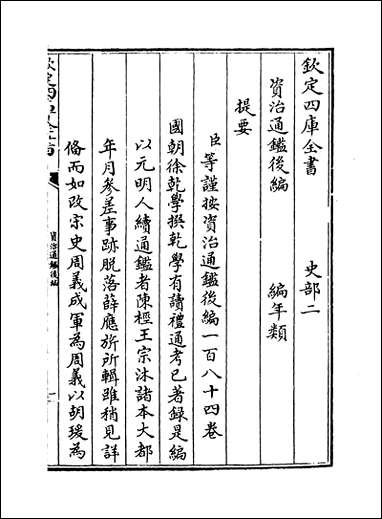 欽定四庫全書
史部二
資治通鑑後編
編年類
提要
臣等謹按資治通鑑後編一百八十四卷
國朝徐乾學撰乾學有讀禮通考已著録是編
以元明人續通鑑者陳桱王宗沐諸本大都
年月參差事跡脱落薛應旂所輯雖稍見詳
俻而如改宋史周義成軍為周義以胡瑗為
資治通鑑後編
一